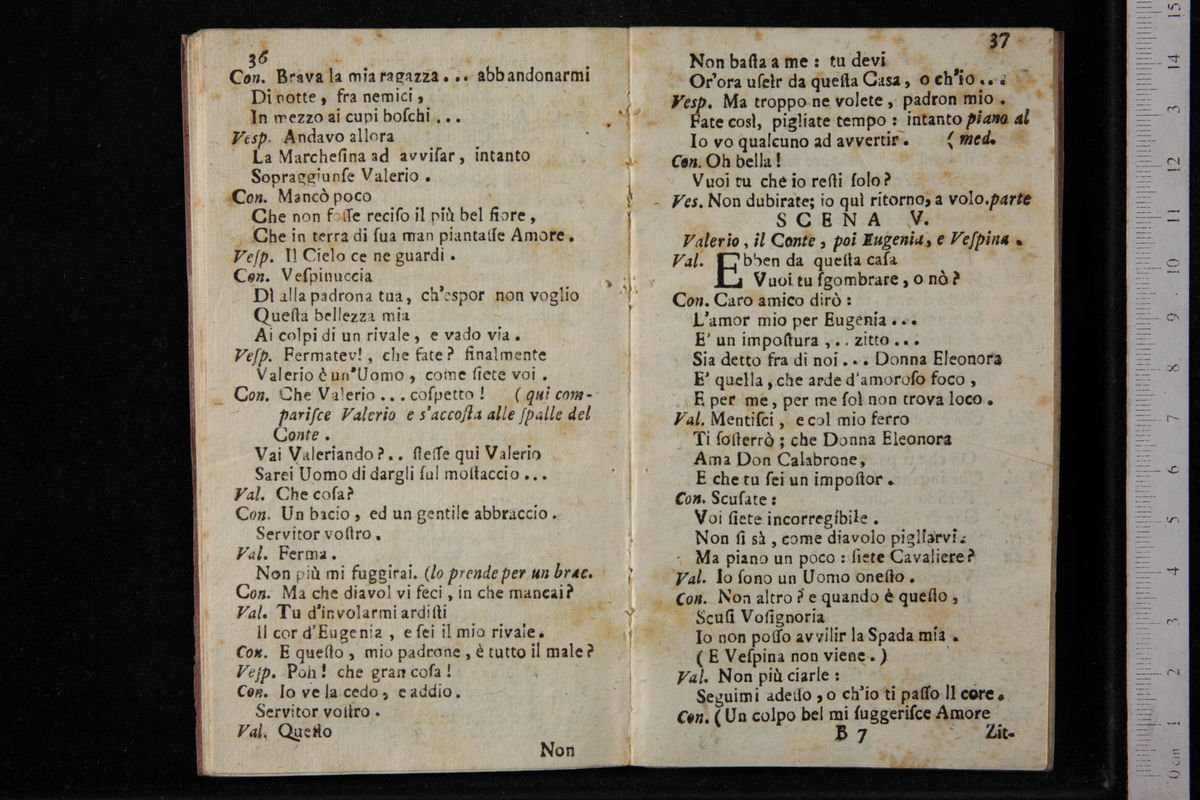 36
Con. Brava la mia ragazza... abbandonarmi
Di notte, fra nemici,
In mezzo ai cupi boſchi...
Veſp. Andavo allora
La Marcheſina ad avviſar, intanto
Sopraggiunſe Valerio.
Con. Mancò poco
Che non foſſe reciſo il più bel fiore,
Che in terra di ſua man piantaſſe Amore.
Veſp. Il Cielo ce ne guardi.
Con. Veſpinuccia
Dì alla padrona tua, ch'espor non voglio
Queſta bellezza mia
Ai colpi di un rivale, e vado via.
Veſp. Fermatevi, che fate? finalmente
Valerio è un'Uomo, come ſiete voi.
Con. Che Valerio... coſpetto! (qui com-
pariſce Valerio e s'accoſta alle ſpalle del
Conte.
Vai Valeriando?.. ſteſſe qui Valerio
Sarei Uomo di dargli ſul moſtaccio...
Val. Che coſa?
Con. Un bacio, ed un gentile abbraccio.
Servitor voſtro.
Val. Ferma.
Non più mi fuggirai. (lo prende per un brac.
Con. Ma che diavol vi feci, in che mancai?
Val. Tu d'involarmi ardiſti
Il cor d'Eugenia, e ſei il mio rivale.
Con. E queſto, mio padrone, è tutto il male?
Veſp. Poh! che gran coſa!
Con. Io ve la cedo, e addio.
Servitor voſtro.
Val. Queſto
Non
37
Non baſta a me: tu devi
Or'ora uſcir da queſta Casa, o ch'io...
Veſp. Ma troppo ne volete, padron mio.
Fate così, pigliate tempo: intanto piano al
Io vo qualcuno ad avvertir. (med.
Con. Oh bella!
Vuoi tu che io reſti ſolo?
Ves. Non dubitate; io quì ritorno, a volo. parte
SCENA V.
Valerio, il Conte, poi Eugenia, e Veſpina.
Val. Ebben da queſta caſa
Vuoi tu ſgombrare, o nò?
Con. Caro amico dirò:
L'amor mio per Eugenia...
E' un impoſtura,.. zitto...
Sia detto fra di noi... Donna Eleonora
E' quella, che arde d'amoroſo foco,
E per me, per me ſol non trova loco.
Val. Mentiſci, e col mio ferro
Ti ſoſterrò; che Donna Eleonora
Ama Don Calabrone,
E che tu ſei un impoſtor.
Con. Scuſate:
Voi ſiete incorregibile.
Non ſi sà, come diavolo pigliarvi.
Ma piano un poco: ſiete Cavaliere?
Val. Io ſono un Uomo oneſto.
Con. Non altro? e quando è queſto,
Scuſi Voſignoria
Io non poſſo avvilir la Spada mia.
(E Veſpina non viene.)
Val. Non più ciarle:
Seguimi adeſſo, o ch'io ti paſſo Il core.
Con. (Un colpo bel mi ſuggeriſce Amore
B 7 Zit-